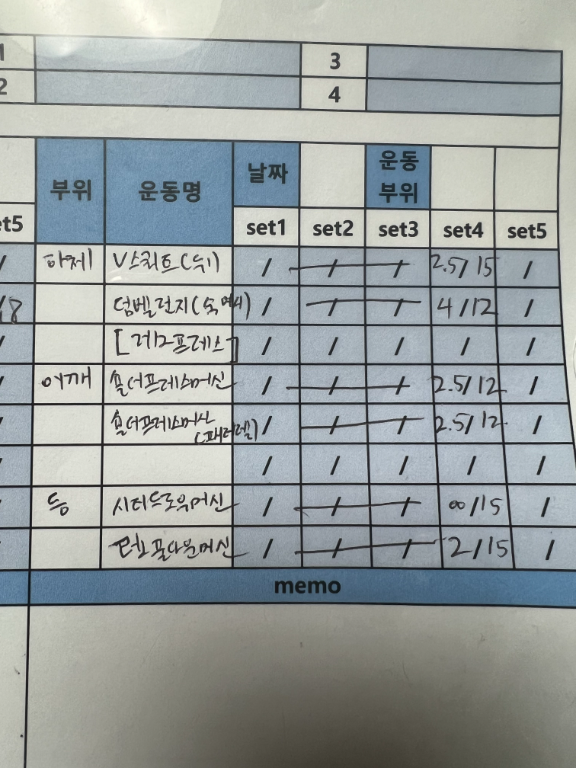 1 3
2 4
부위 운동명 날짜 운동
부위
et5 set1 set2 set3 set4 set5
/ 하체 V스쿼트(뉴) / / / 2.5/15 /
/8 덤벨런지( / / 4/12 /
/ [레그프레스] / / / / /
/ 어깨 숄더프레스머신 / / / 2.5/12 /
/ 숄더프레스머신 / / / 2.5/12 /
(패러럴)
/ / / / / /
/ 등 시티드로우머신 / / / ∞/15 /
/ 랫풀다운머신 / / / 2/15 /
memo